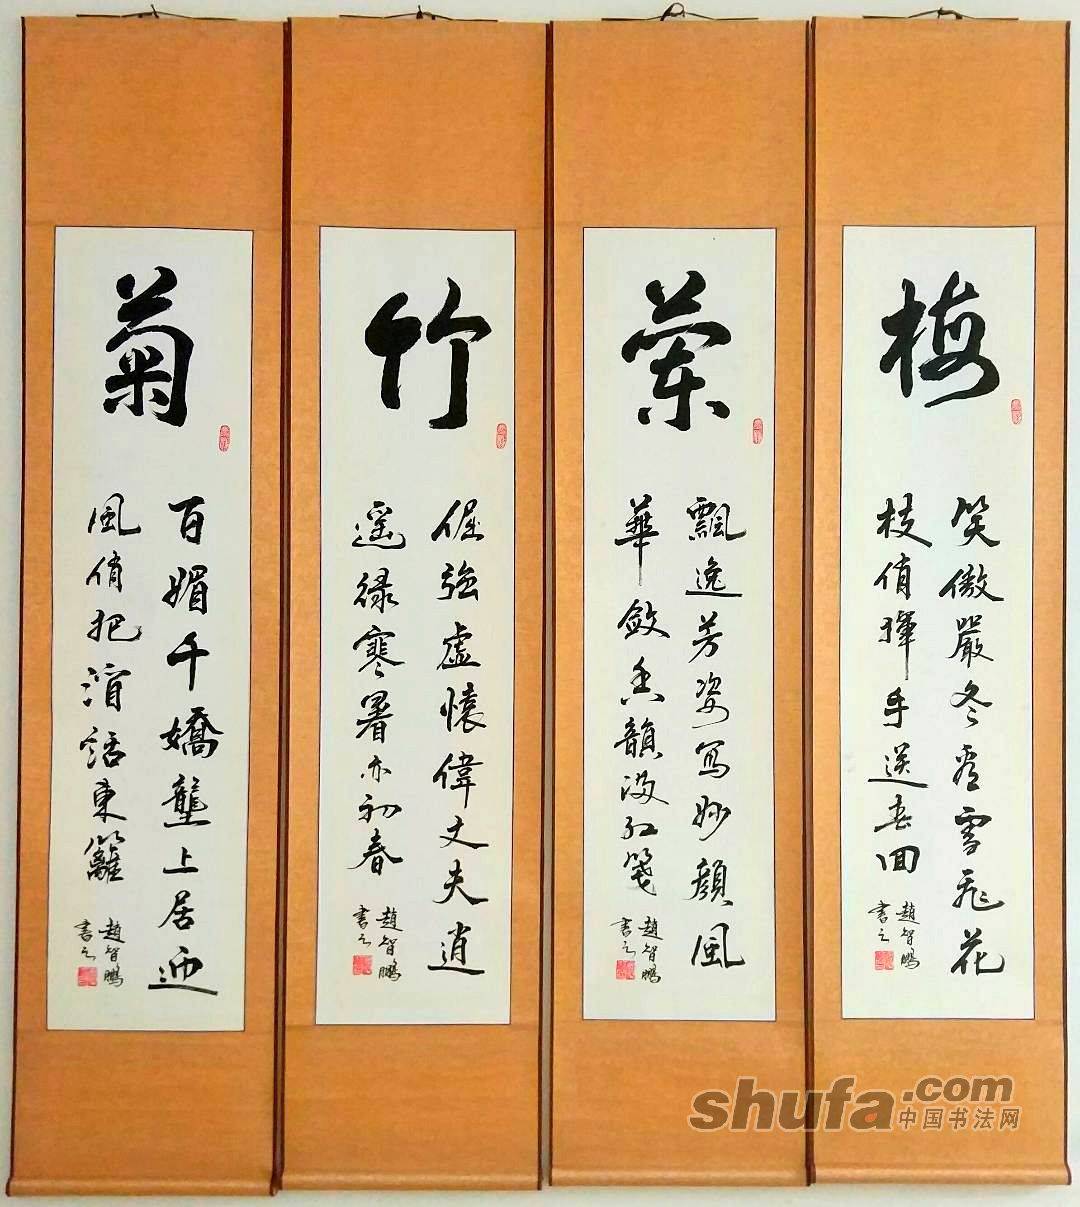 梅
笑傲嚴冬看雪飛花
枝俏揮手送春回
趙智鵬
書之
蘭
飄逸芳姿寫妙顏風
華斂盡韻滿紅箋
趙智鵬
書之
竹
倔強虛懷偉丈夫逍
遙綠寒暑亦初春
趙智鵬
書之
菊
百媚千嬌壟上居迎
風俏把酒話東籬
趙智鵬
書之
shufa.com
中国书法网